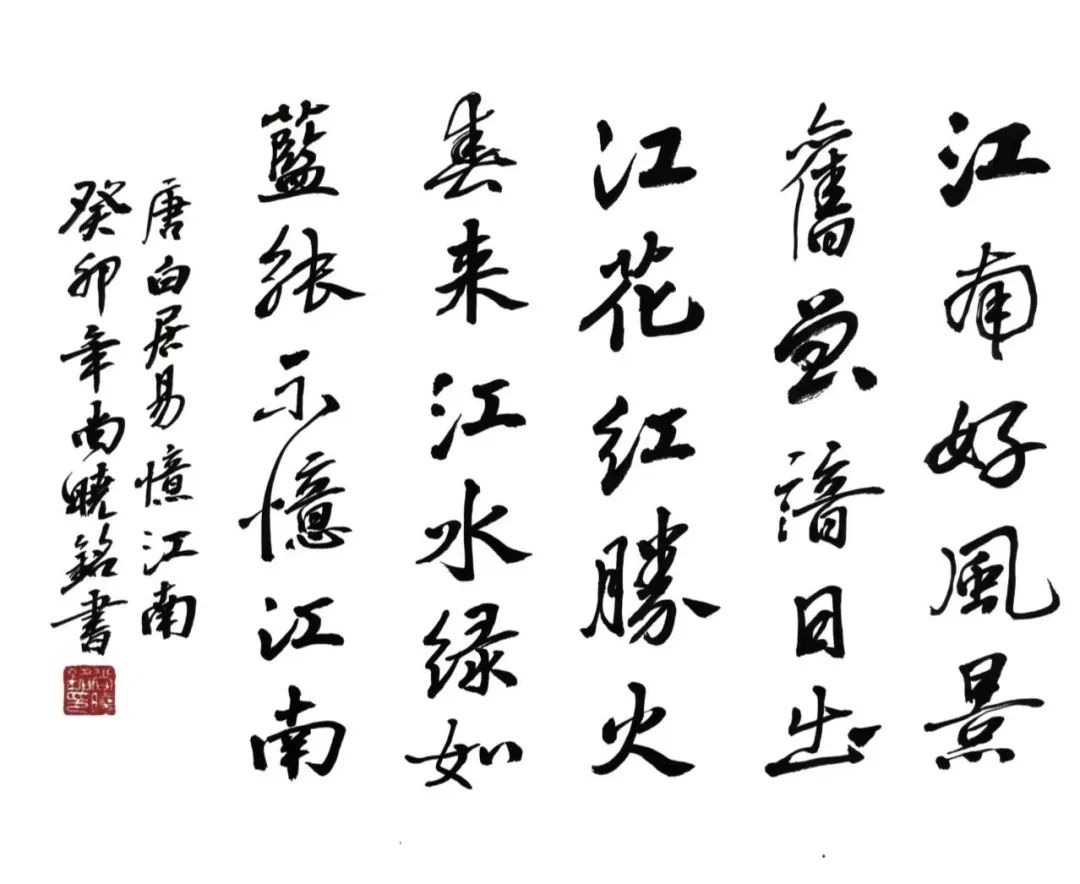 江南好風景
舊曾諳日出
江花红勝火
春来江水绿如
藍能不憶江南
唐白居易憶江南
癸卯年尚曉銘書